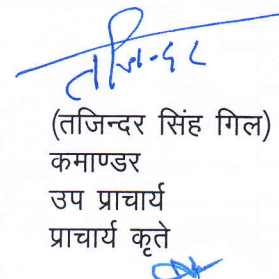 तजिन्दर
(तजिन्दर सिंह गिल)
कमाण्डर
उप प्राचार्य
प्राचार्य कृते